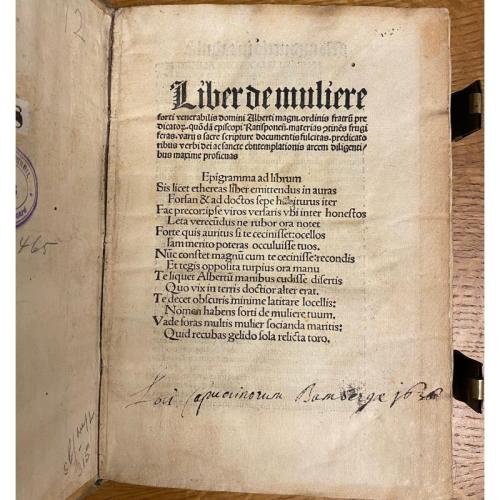 12
Liber de muliere
forti venerabilis domini Alberti magni. ordinis fratrū pre
dicatoꝝ. quōdā episcopi Ratisponeñ. materias ꝯtinēs frugi
feras. variis sacre scripture documentis fulcitas. predicato
ribus verbi dei ac sancte contemplationis arcem diligenti/
bus maxime proficuas
Epigramma ad librum
Sis licet ethereas liber emittendus in auras
Forsan & ad doctos sepe habiturus iter
Fac precor: ipse viros verseris vbi inter honestos
Leta verecūdus ne rubor ora notet
Forte quis auritus si te cecinisset: ocellos
Iam merito poteras occuluisse tuos.
Nūc constet magnū cum te cecinisse: recondis
Et tegis opposita turpius ora manu
Te liquet Albertū manibus cudisse disertis
Quo vix in terris doctior alter erat.
Te decet obscuris minime latitare locellis:
Nomen habens forti de muliere tuum.
Vade foras multis mulier socianda maritis:
Quid recubas gelido sola relicta toro.
Loci Capucinorum Bambergæ 1636
465